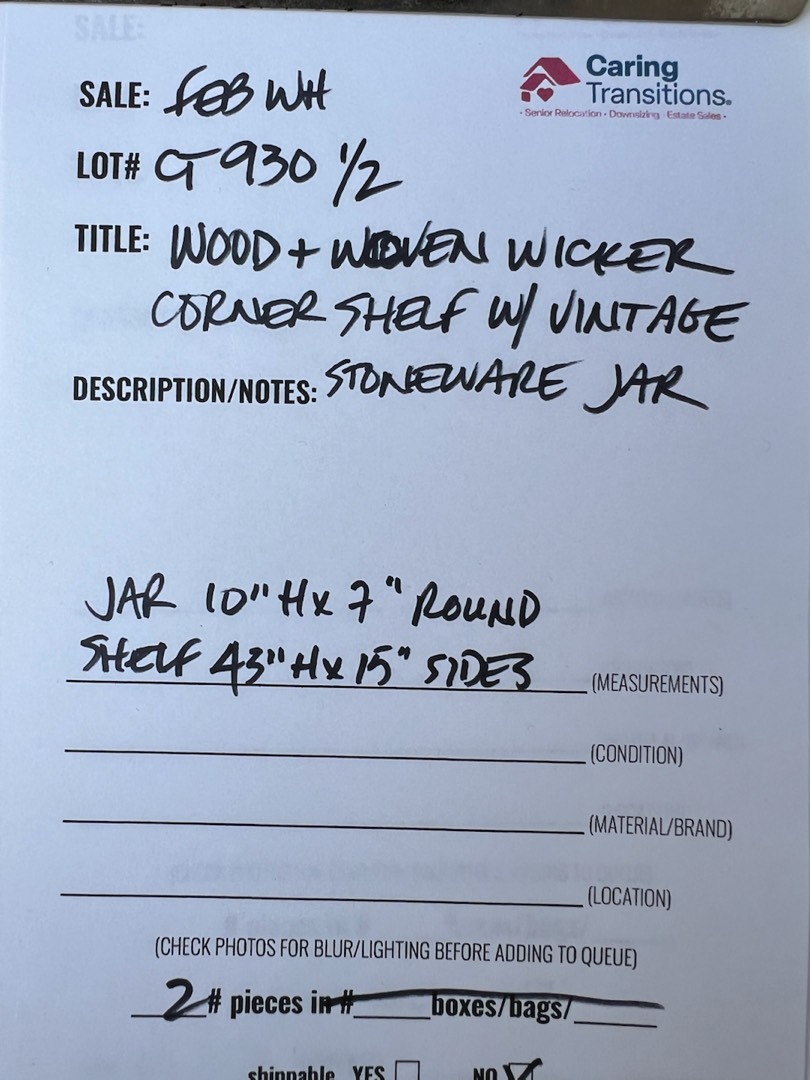 Caring
Transitions.
• Senior Relocation • Downsizing • Estate Sales •
SALE: FEB WH
LOT# G930 1/2
TITLE: WOOD + WOVEN WICKER
CORNER SHELF W/ VINTAGE
DESCRIPTION/NOTES: STONEWARE JAR
JAR 10" H x 7" ROUND
SHELF 43" H x 15" SIDES (MEASUREMENTS)
(CONDITION)
(MATERIAL/BRAND)
(LOCATION)
(CHECK PHOTOS FOR BLUR/LIGHTING BEFORE ADDING TO QUEUE)
2 # pieces in # boxes/bags/
shippable YES NO